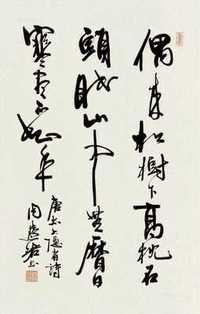 偶来松樹下高枕石
頭眠山中無曆日
寒尽不知年
唐太上隱者詩
周慧珺书